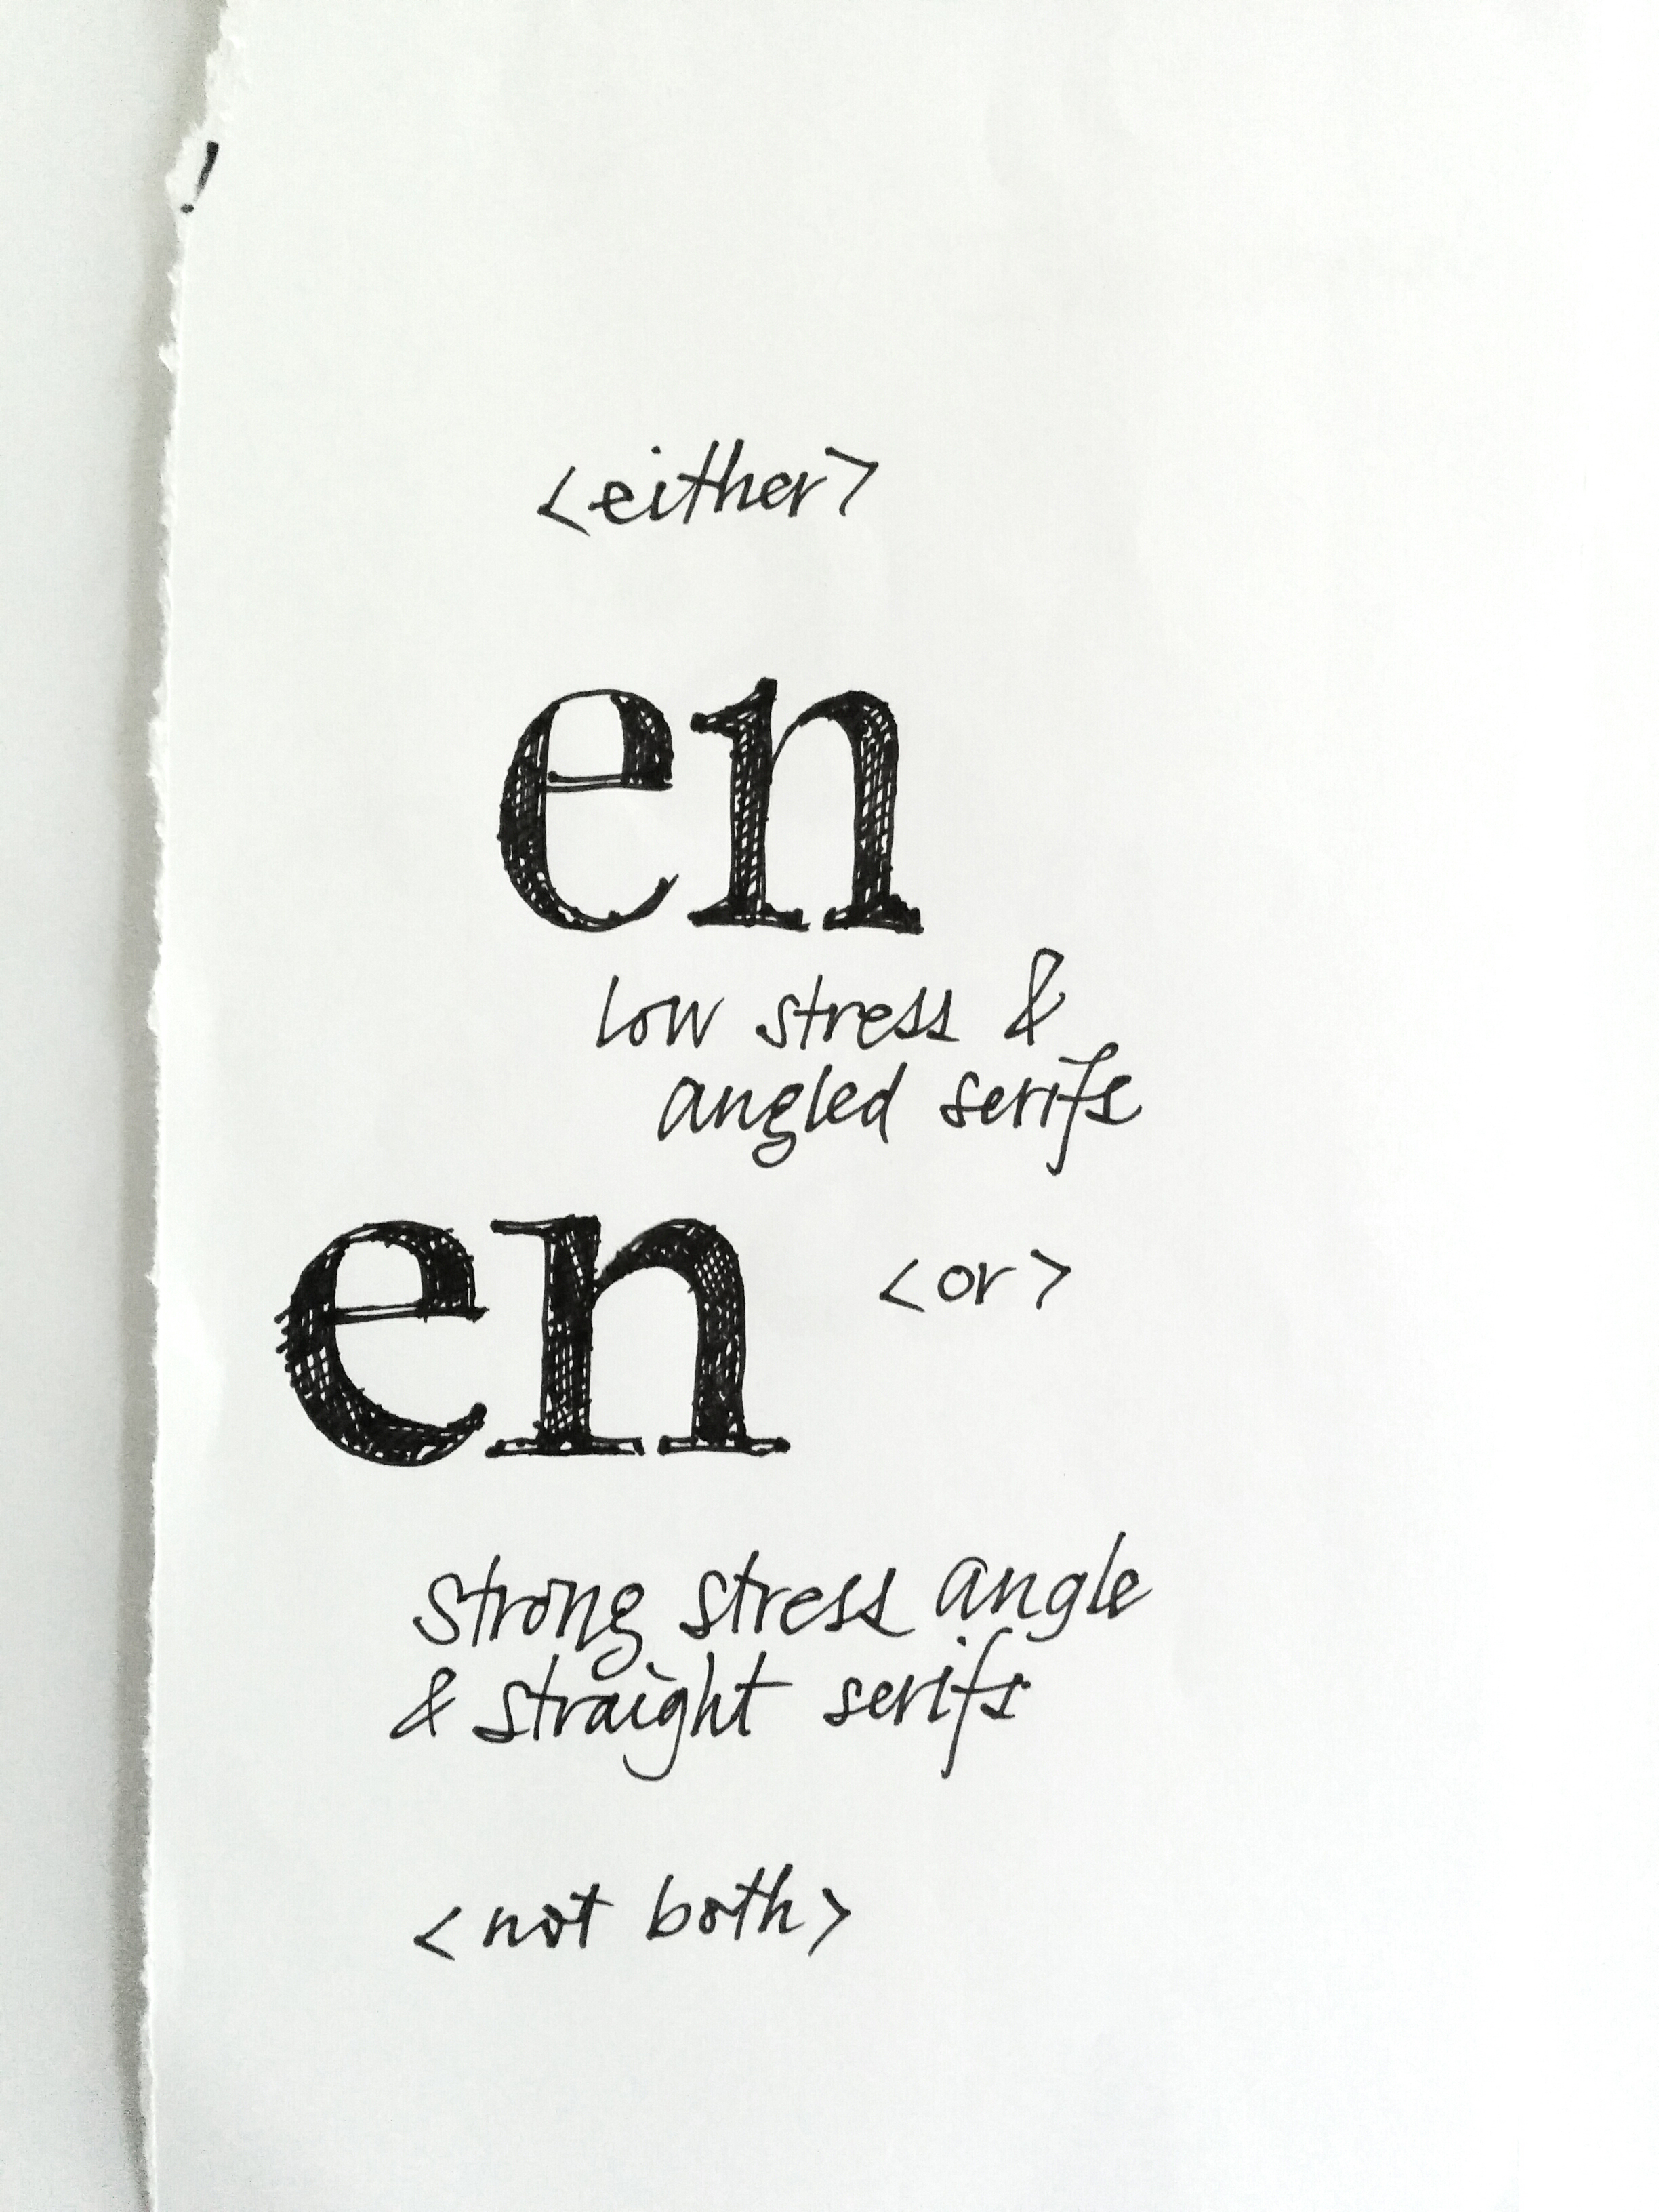 !
<either>
en
low stress &
angled serifs
en
<or>
strong stress angle
& straight serifs
<not both>